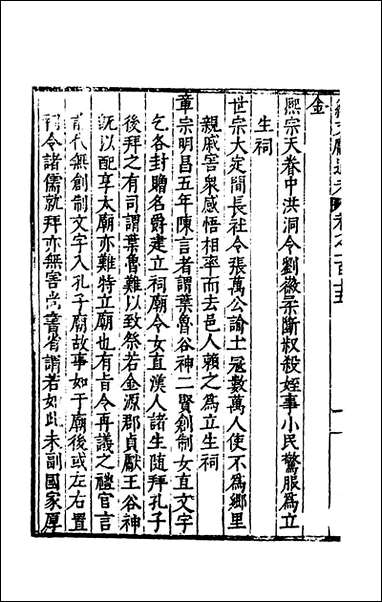 續文獻通考 卷之一百十五
金
熙宗天眷中洪洞令劉徽柔斷叔殺姪事小民驚服為立
生祠
世宗大定間長社令張萬公諭土冦數萬人使不為鄉里
親戚害衆感悟相率而去邑人賴之為立生祠
章宗明昌五年陳言者謂葉魯谷神二賢創制女直文字
乞各封贈名爵建立祠廟令女直漢人諸生随拜孔子
後拜之有司謂葉魯難以致祭若金源郡貞獻王谷神
旣以配享太廟亦難特立廟也有㫖令再議之禮官言
前代無創制文字入孔子廟故事如于廟後或左右置
祠令諸儒就拜亦無害尚書省謂若如此未副國家厚